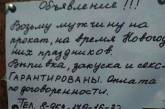 Объявление!!!
Возьму мужчину на
прокат, на время Новогод
них праздников.
Выпивка, закуска и секс-
ГАРАНТИРОВАНЫ. Оплата
по договоренности.
Тел.